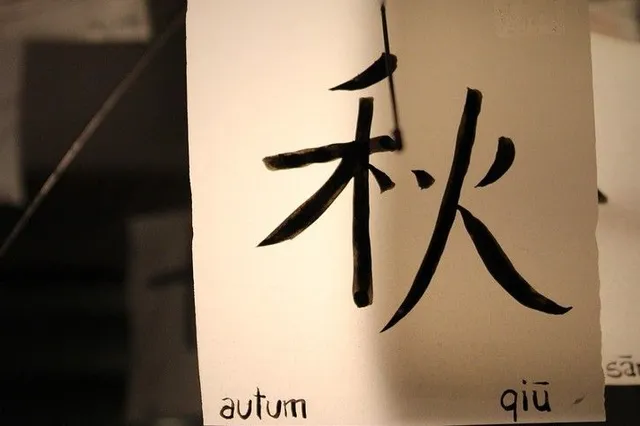 秋
autum qiū